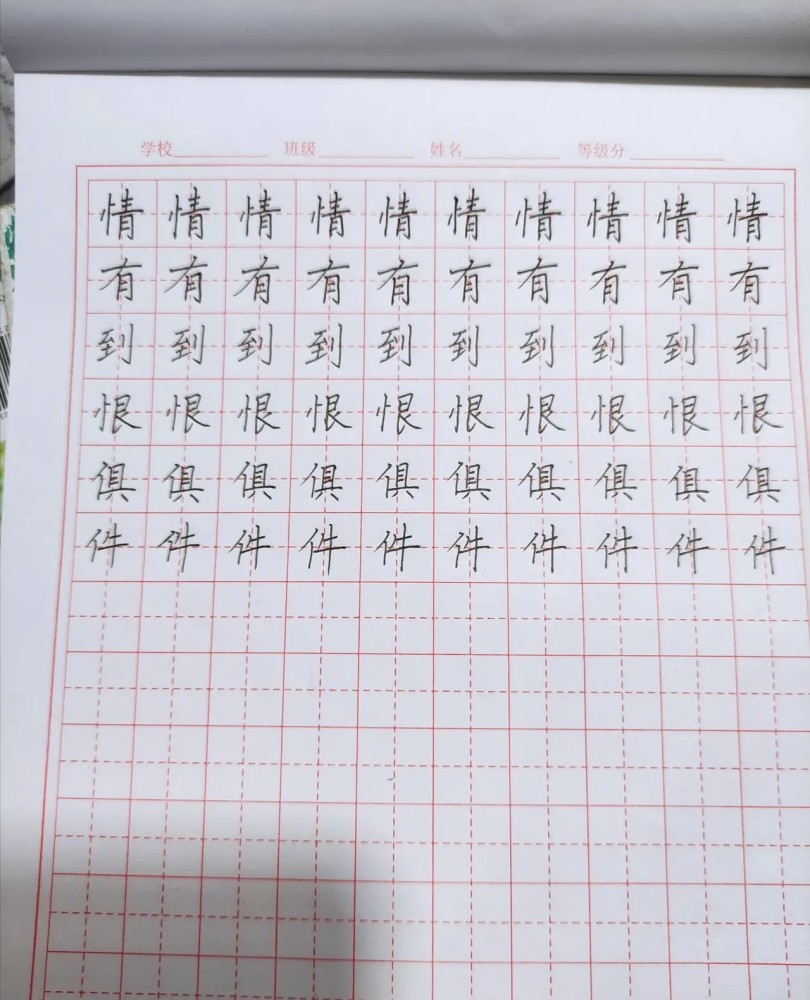 学校 班级 姓名 等级分
情情情情情情情情情情
有有有有有有有有有有
到到到到到到到到到到
恨恨恨恨恨恨恨恨恨恨
俱俱俱俱俱俱俱俱俱俱
件件件件件件件件件件